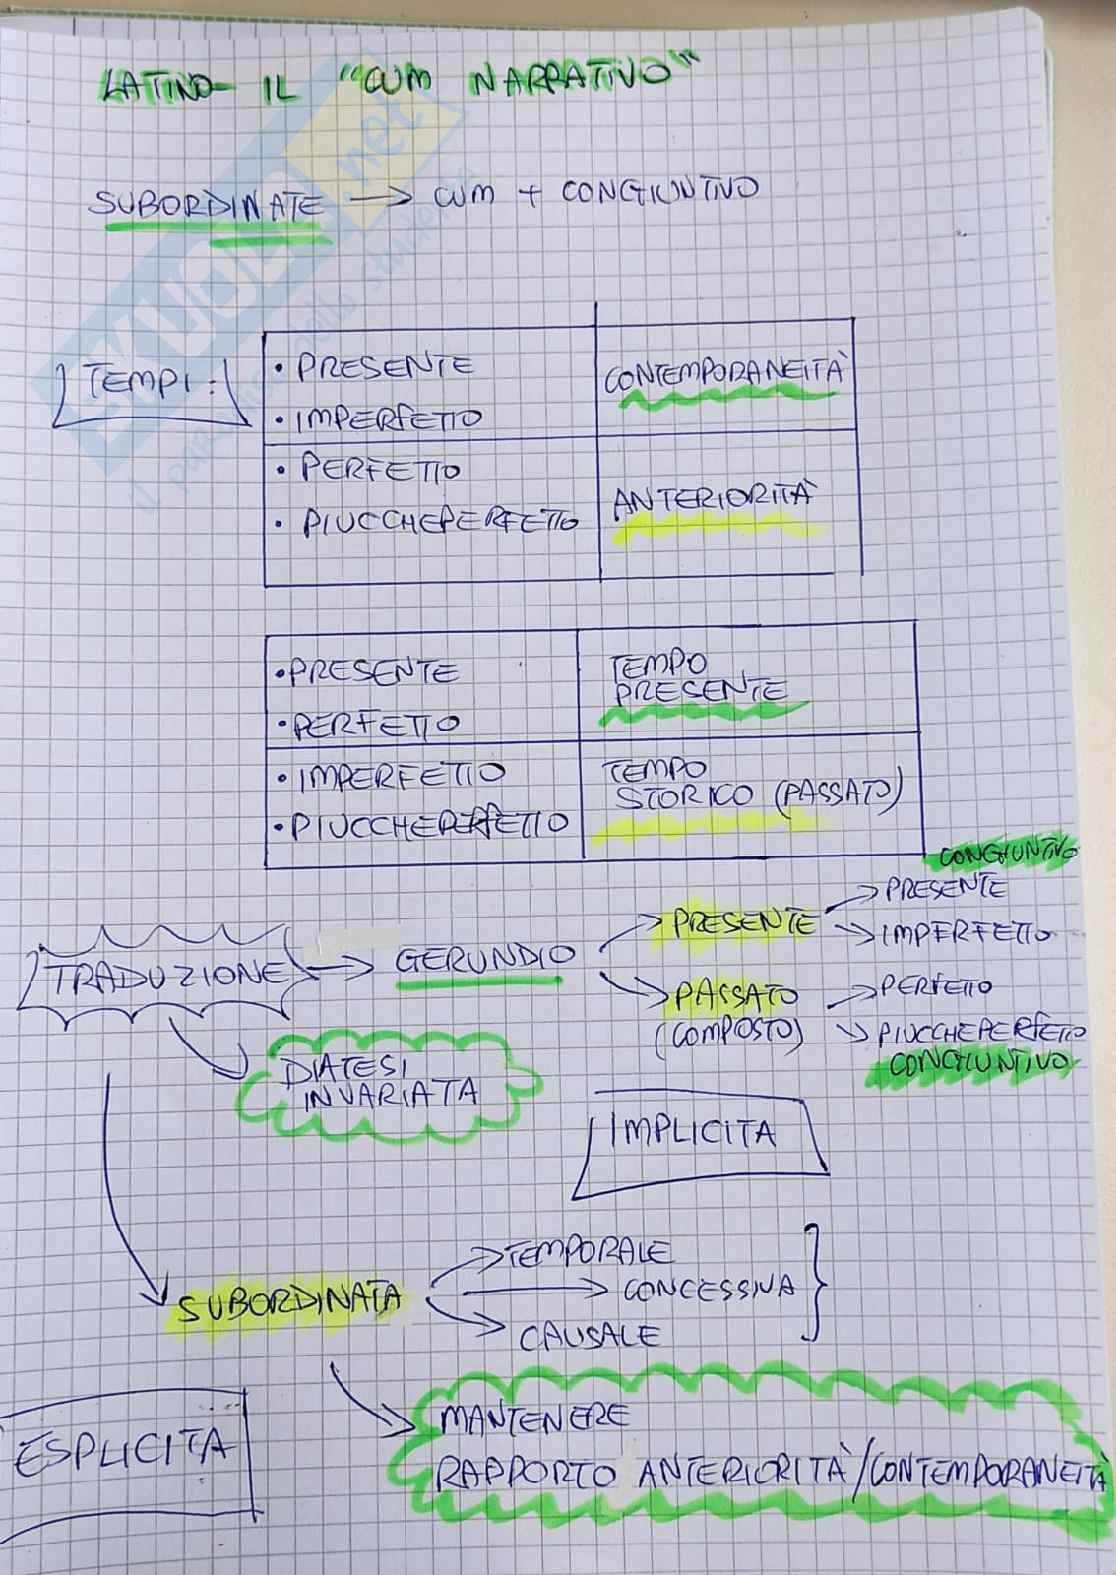 LATINO- IL "CUM NARRATIVO"
SUBORDINATE → CUM + CONGIUNTIVO
TEMPI:
• PRESENTE
• IMPERFETTO
CONTEMPORANEITÀ
• PERFETTO
• PIUCCHEPERFETTO
ANTERIORITÀ
• PRESENTE
• PERFETTO
TEMPO
PRESENTE
• IMPERFETTO
• PIUCCHEPERFETTO
TEMPO
STORICO (PASSATO)
CONGIUNTIVO
TRADUZIONE → GERUNDIO
PRESENTE → PRESENTE
→ IMPERFETTO
PASSATO → PERFETTO
(COMPOSTO) → PIUCCHEPERFETTO
CONGIUNTIVO
DIATESI
INVARIATA
IMPLICITA
SUBORDINATA
→ TEMPORALE
→ CONCESSIVA
→ CAUSALE
ESPLICITA
MANTENERE
RAPPORTO ANTERIORITÀ/CONTEMPORANEITÀ